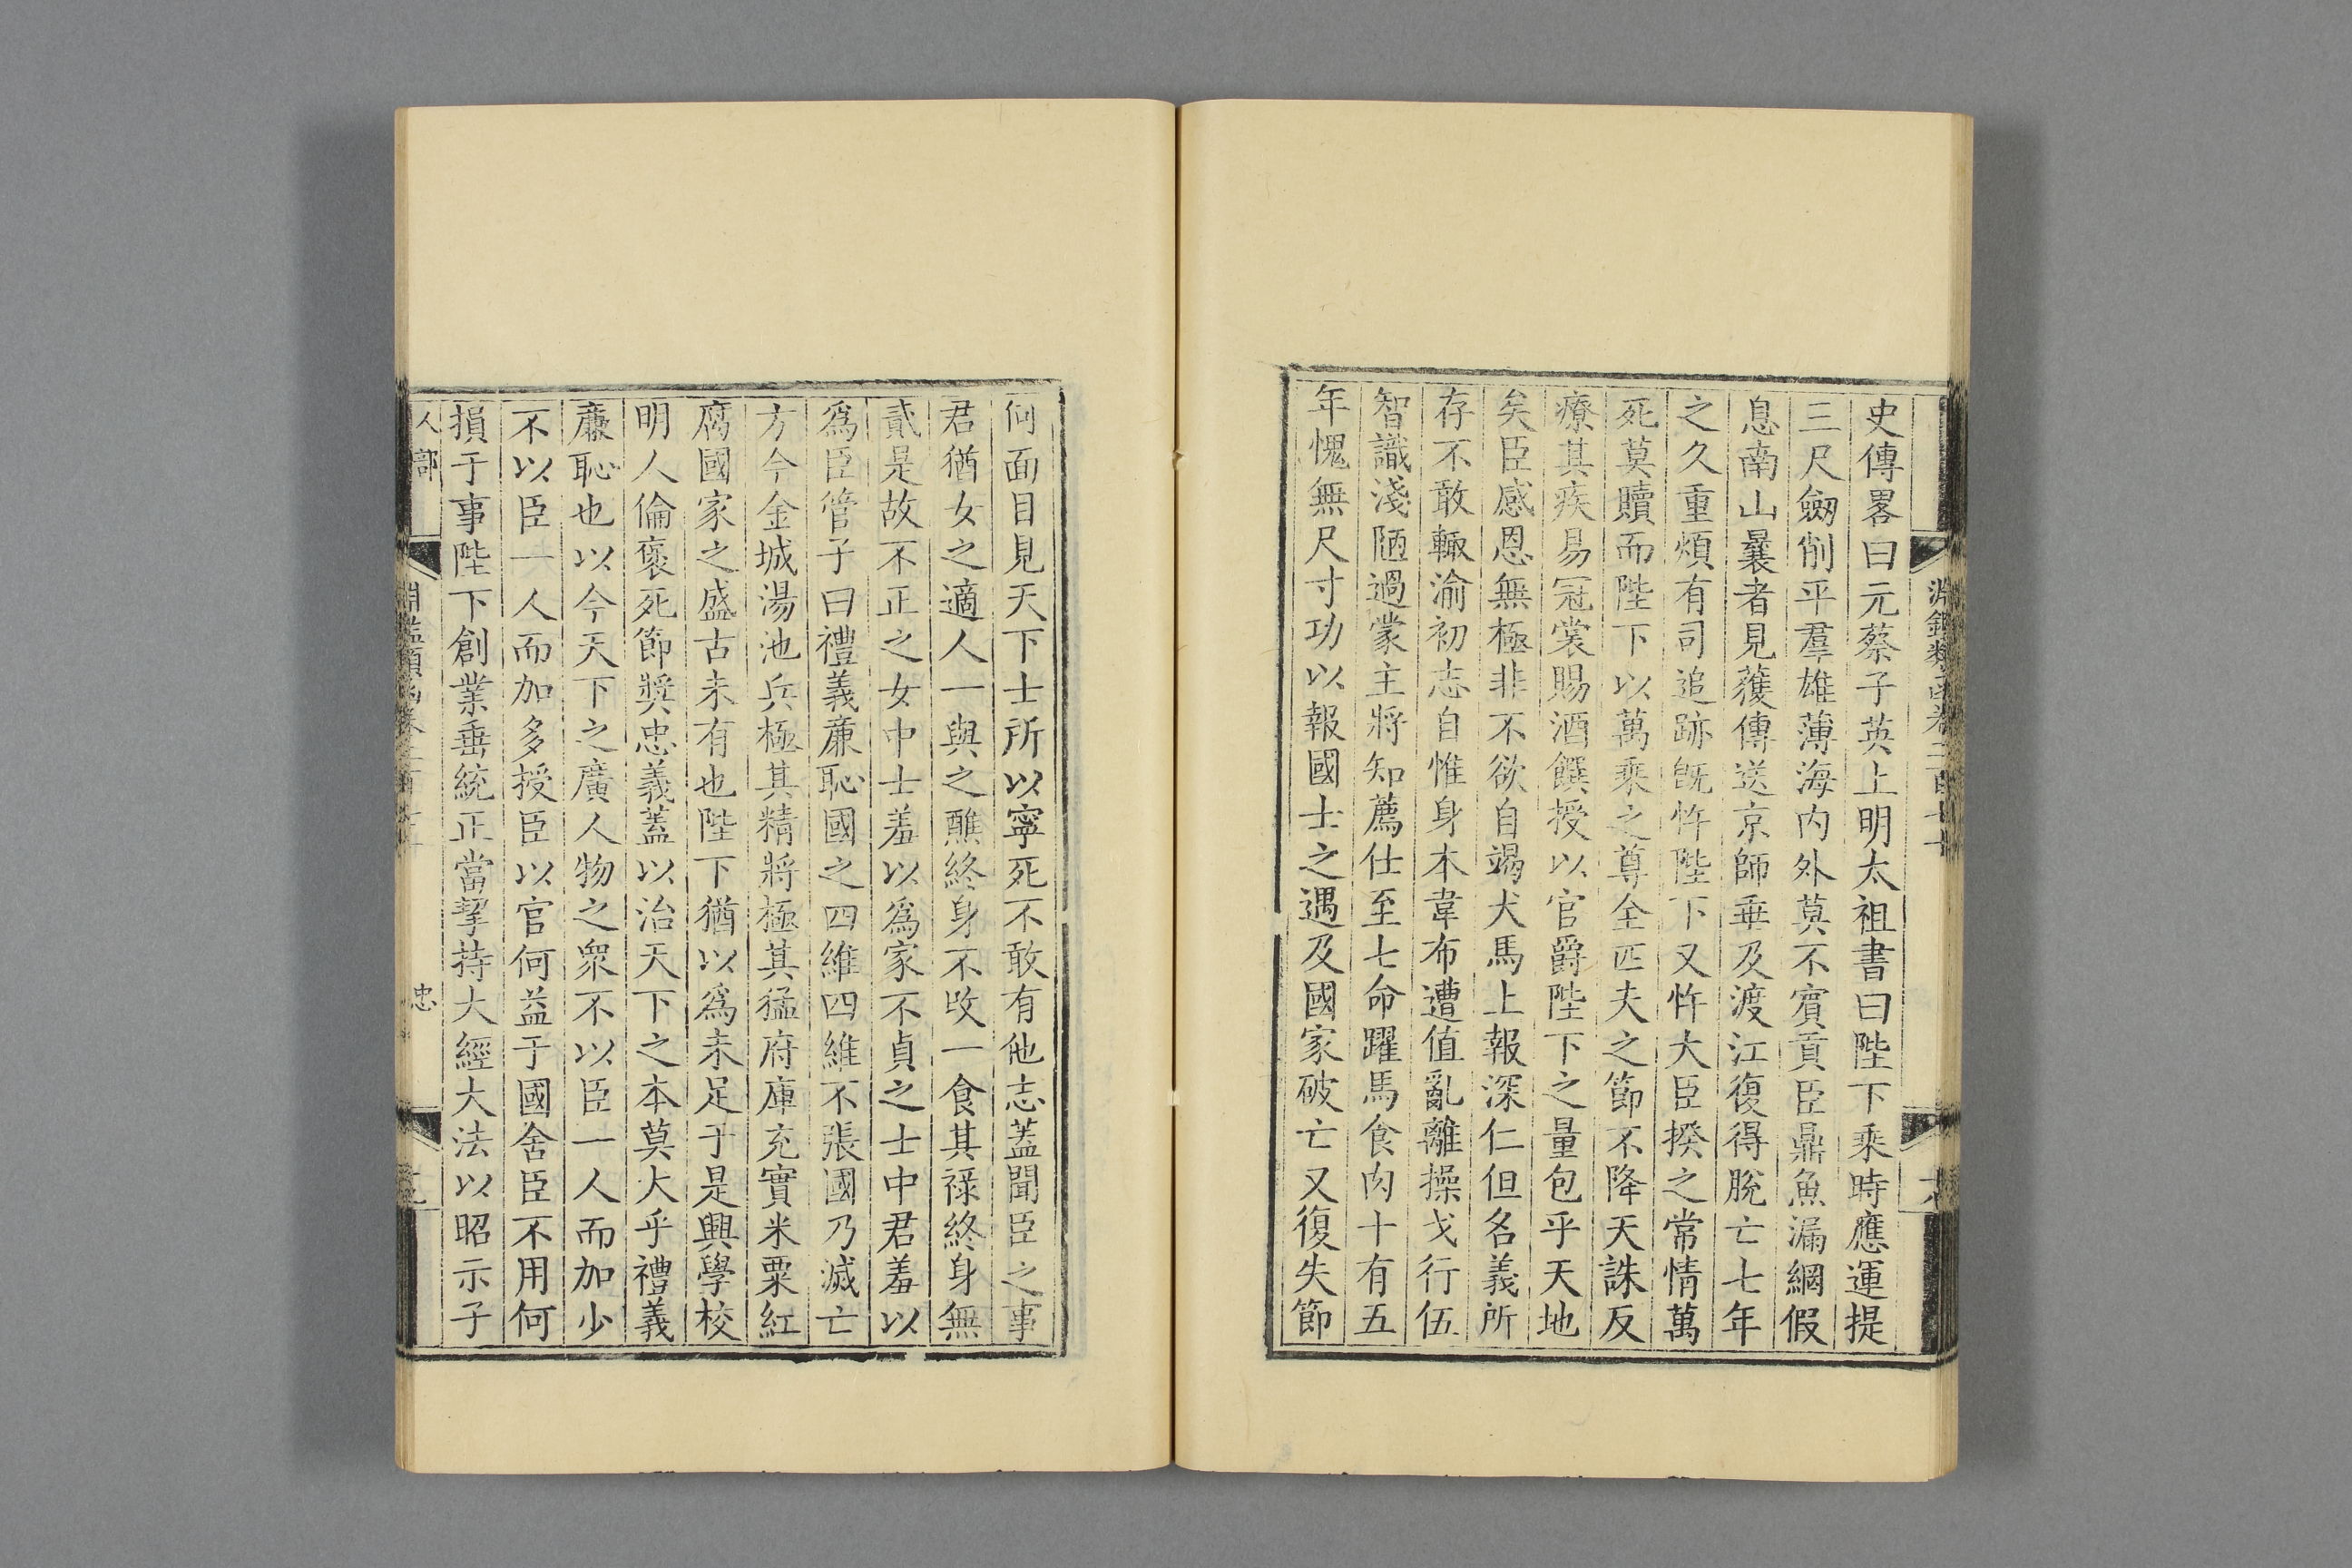 史傳畧曰元蔡子英上明太祖書曰陛下乘時應運提
三尺劔削平羣雄薄海內外莫不賓貢臣鼎魚漏網假
息南山曩者見獲傳送京師垂及渡江復得脫亡七年
之久重煩有司追跡旣忤陛下又忤大臣揆之常情萬
死莫贖而陛下以萬乘之尊全匹夫之節不降天誅反
療其疾易冠裳賜酒饌授以官爵陛下之量包乎天地
矣臣感恩無極非不欲自竭犬馬上報深仁但名義所
存不敢輙渝初志自惟身本韋布遭值亂離操戈行伍
智識淺陋過蒙主將知薦仕至七命躍馬食肉十有五
年愧無尺寸功以報國士之遇及國家破亡又復失節
何面目見天下士所以寧死不敢有他志蓋聞臣之事
君猶女之適人一與之醮終身不改一食其祿終身無
貳是故不正之女中士羞以爲家不貞之士中君羞以
爲臣管子曰禮義廉恥國之四維四維不張國乃滅亡
方今金城湯池兵極其精將極其猛府庫充實米粟紅
腐國家之盛古未有也陛下猶以爲未足于是興學校
明人倫褒死節奬忠義蓋以治天下之本莫大乎禮義
廉恥也以今天下之廣人物之衆不以臣一人而加少
不以臣一人而加多授臣以官何益于國舍臣不用何
損于事陛下創業垂統正當挈持大經大法以昭示子
人部
忠